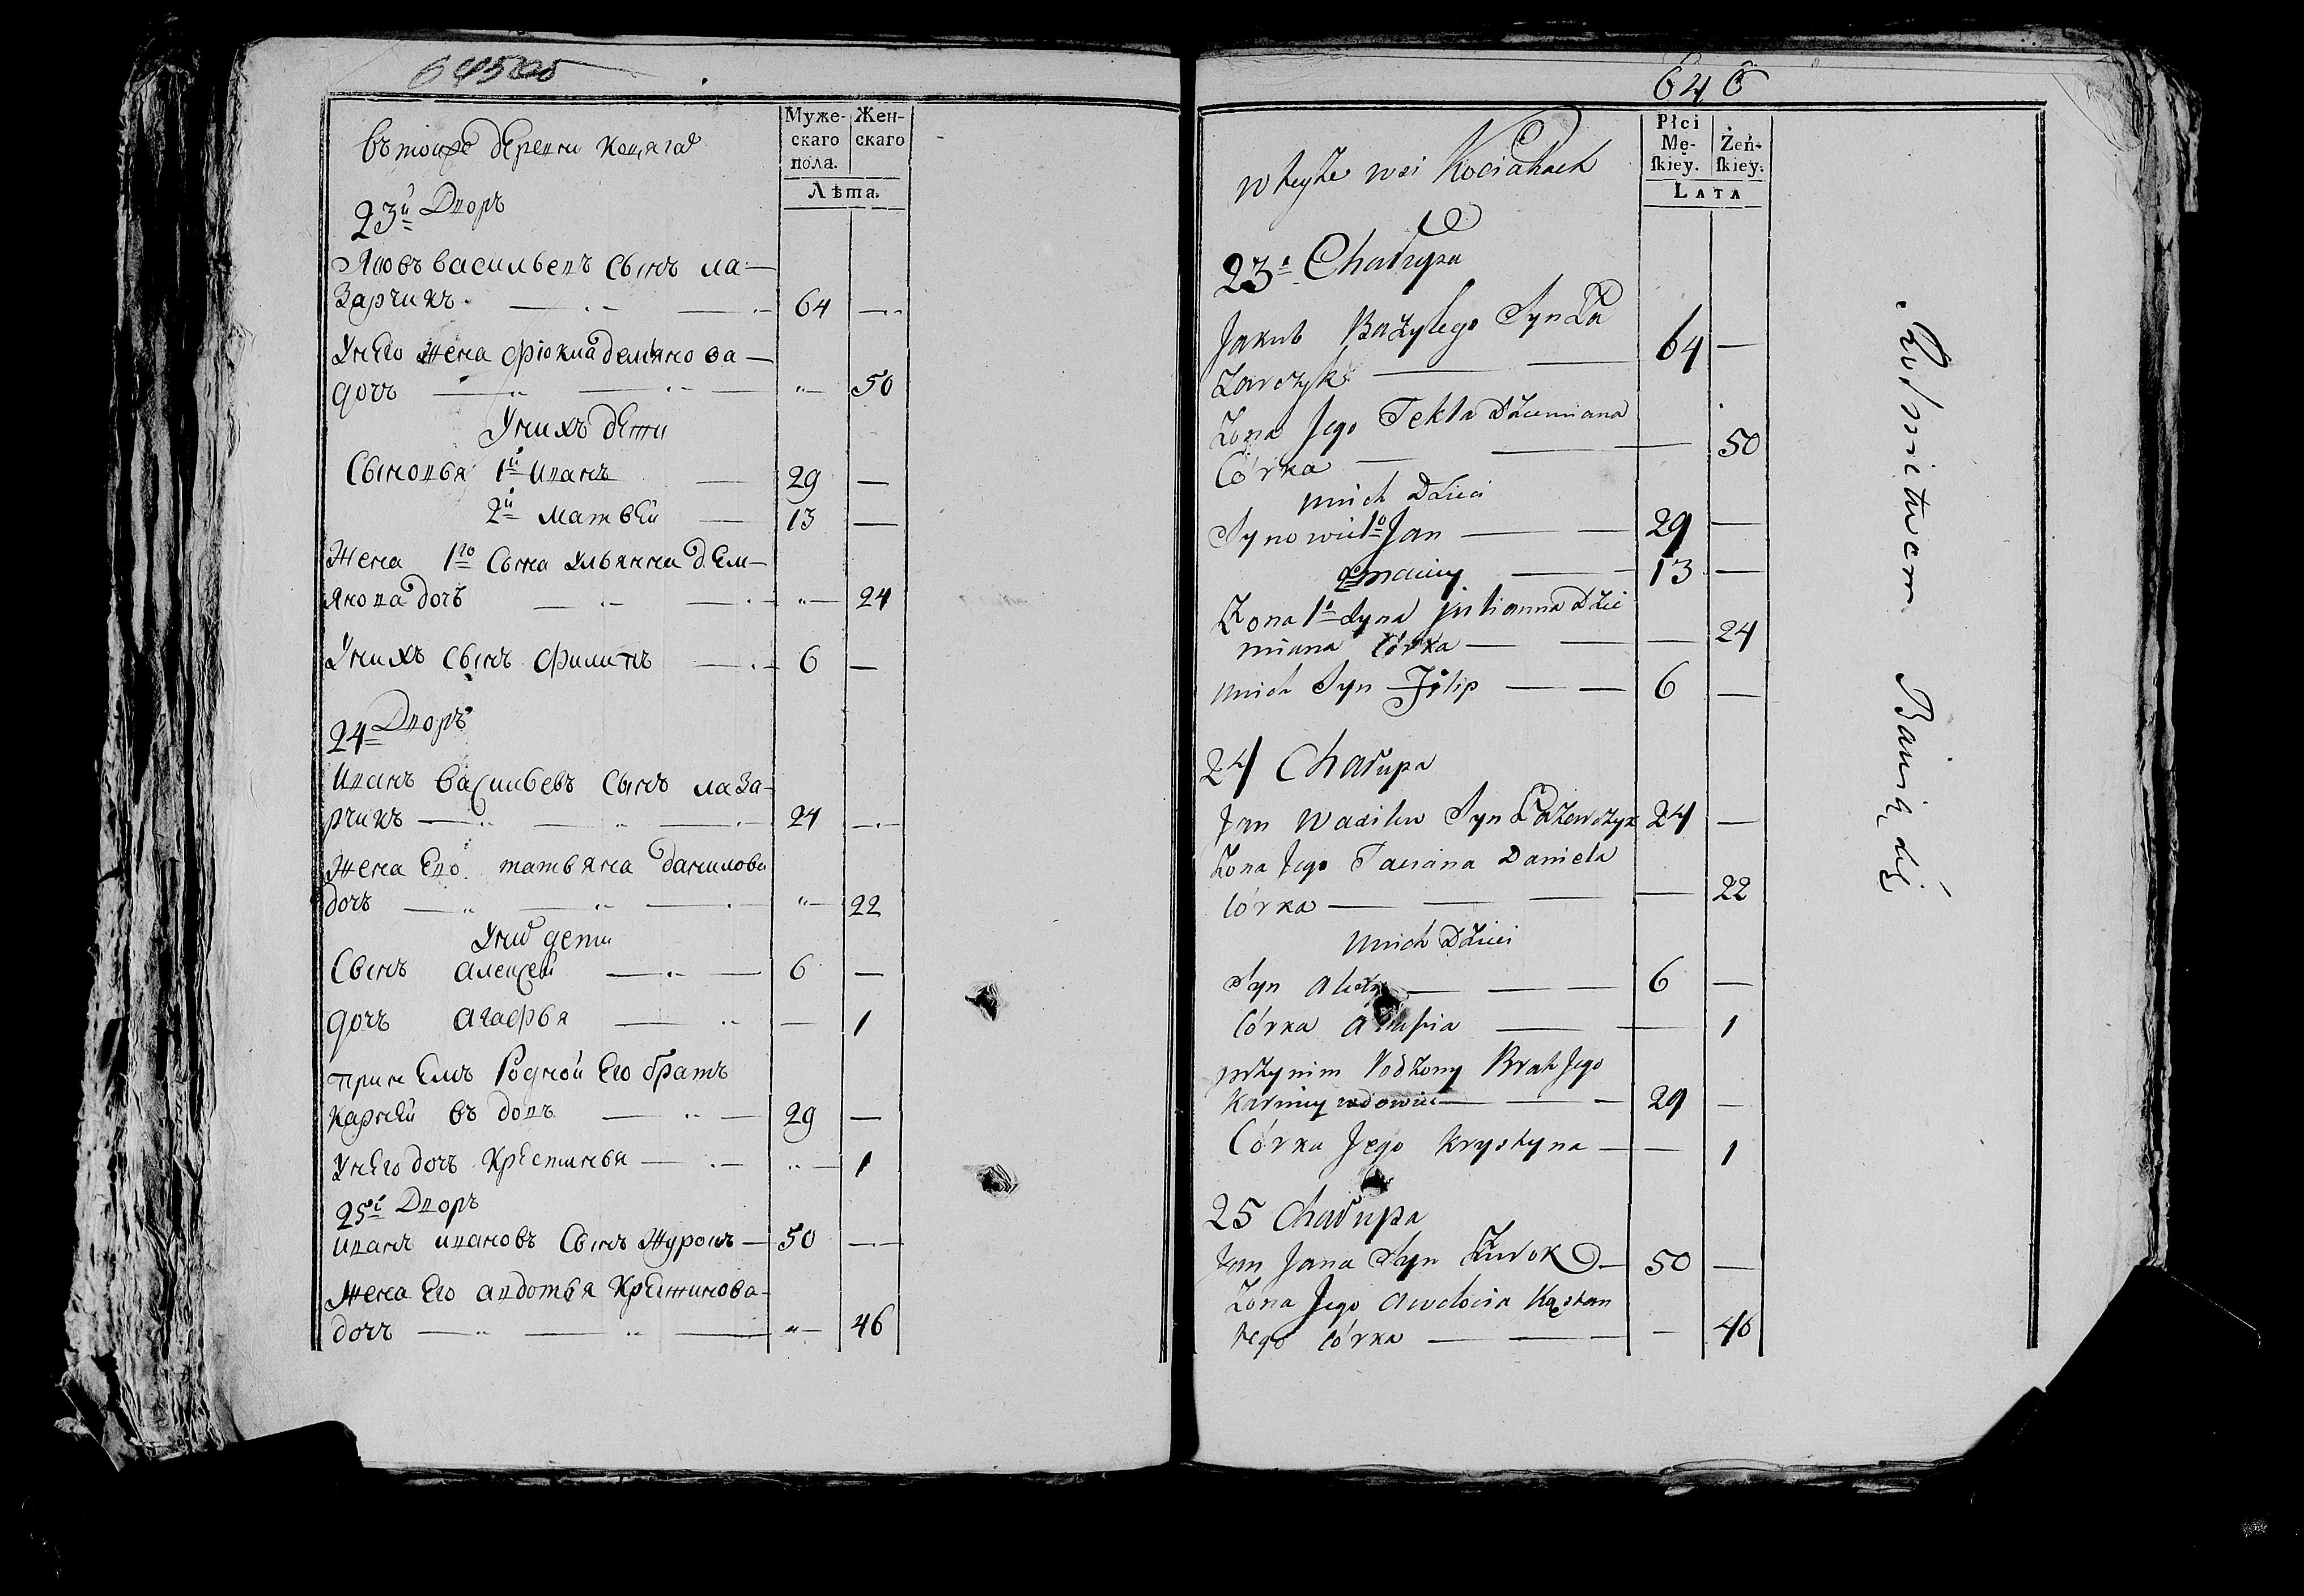 645 об
Муже-
скаго
пола.
Жен-
скаго
Лѣта.
въ тойже деревни Коцягах
23й Дворъ
Яковъ васильевъ Сынъ ла-
зарчикъ 64 —
Унего жена Фіокла демянова
дочъ „— 50
Унихъ дети
Сыновья 1й иванъ 29 —
2й матвей 13 —
Жена 1го Сына Ульянна дем-
янова дочъ „— 24
Унихъ Сынъ Филипъ 6 —
24 Дворъ
иванъ васильевъ Сынъ лаза-
рчикъ 24 —
жена Его татьяна данилова
дочъ „— 22
Них дети
Сынъ алексей 6 —
дочъ агафья — 1
при нЕмъ Родной Его братъ
карней въдовъ 29 —
Унего дочъ Крестинья „— 1
25й Дворъ
иванъ ивановъ Сынъ Журокъ 50 —
жена Его авдотья
дочъ „— 46
646
Płci
Mę-
ſkiey.
Żeń-
ſkiey.
LATA
w teyże wsi Kociahach
23a Chałupa
Jakub Bazylego Syn Ła
zarczyk 64 —
Żona Jego Tekla Dziemiana
Córka — 50
unich Dzieci
Synowie 1o Jan 29 —
2o Maciey 13 —
Żona 1o Syna julianna Dzie
miana Córka — 24
unich Syn Filip 6 —
24 Chałupa
Jan Wasilew Syn Łazarczyk 24 —
Żona Jego Taciana Daniela
Córka — 22
Unich Dzieci
Syn 6 —
Córka — 1
przynim Rodzony Brat Jego
Karniey wdowiec 29 —
Córka Jego Krystyna — 1
25 Chałupa
Jan Jana Syn Żurok 50 —
Żona Jego Awdocia Kąstan
tego Córka — 46